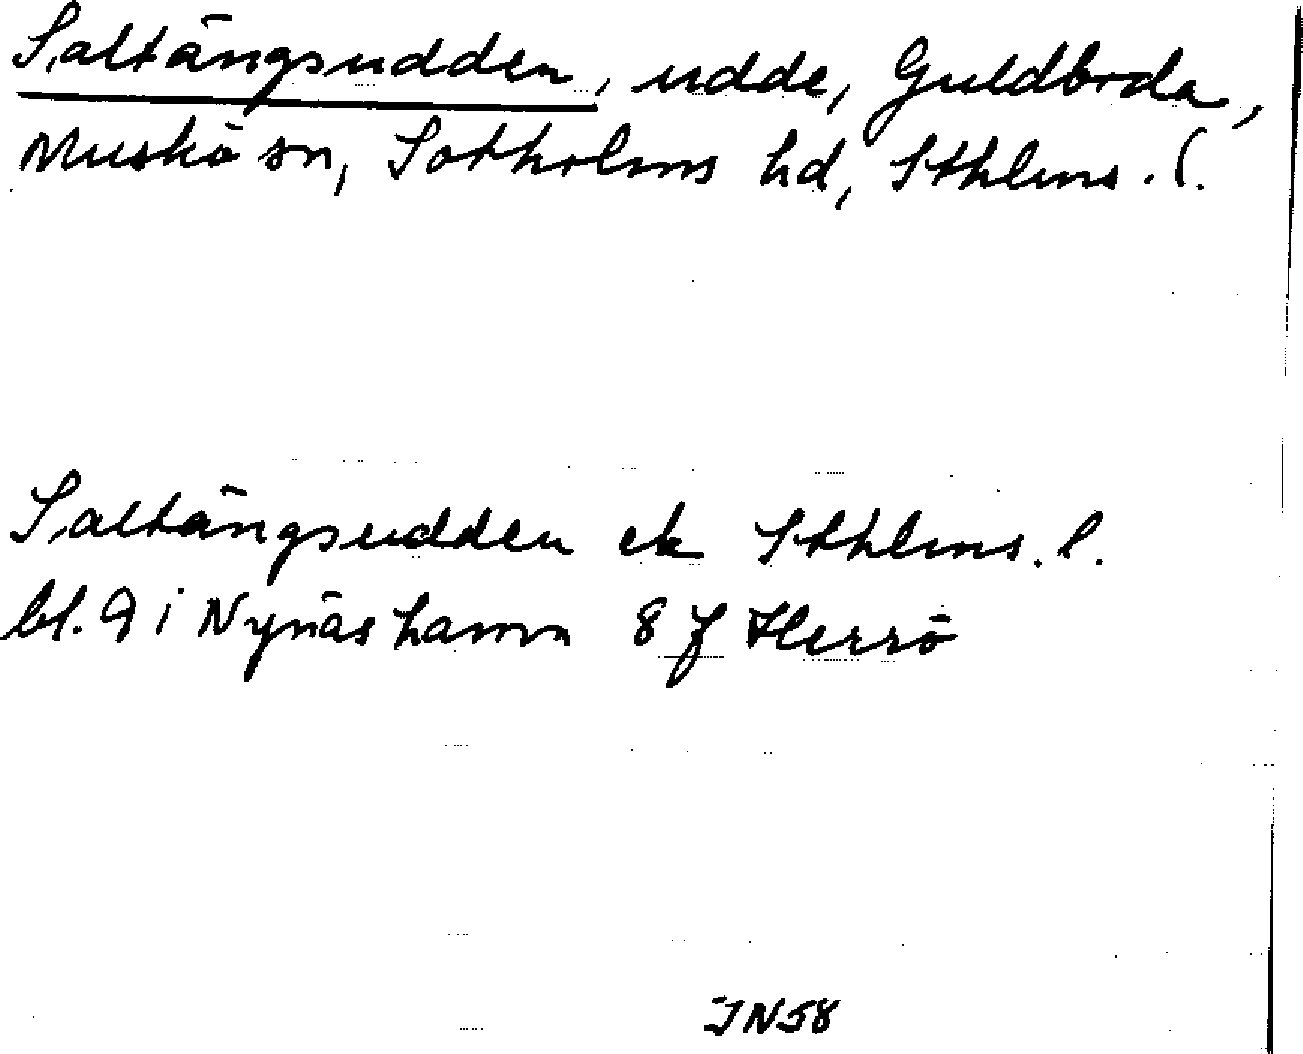 Saltängsudden, udde, Guldboda,
Muskö sn, Sotholms hd, Sthlms. l.
Saltängsudden ek Sthlms. l.
bl. 9 i Nynäshamn 8 f Herrö
IN58